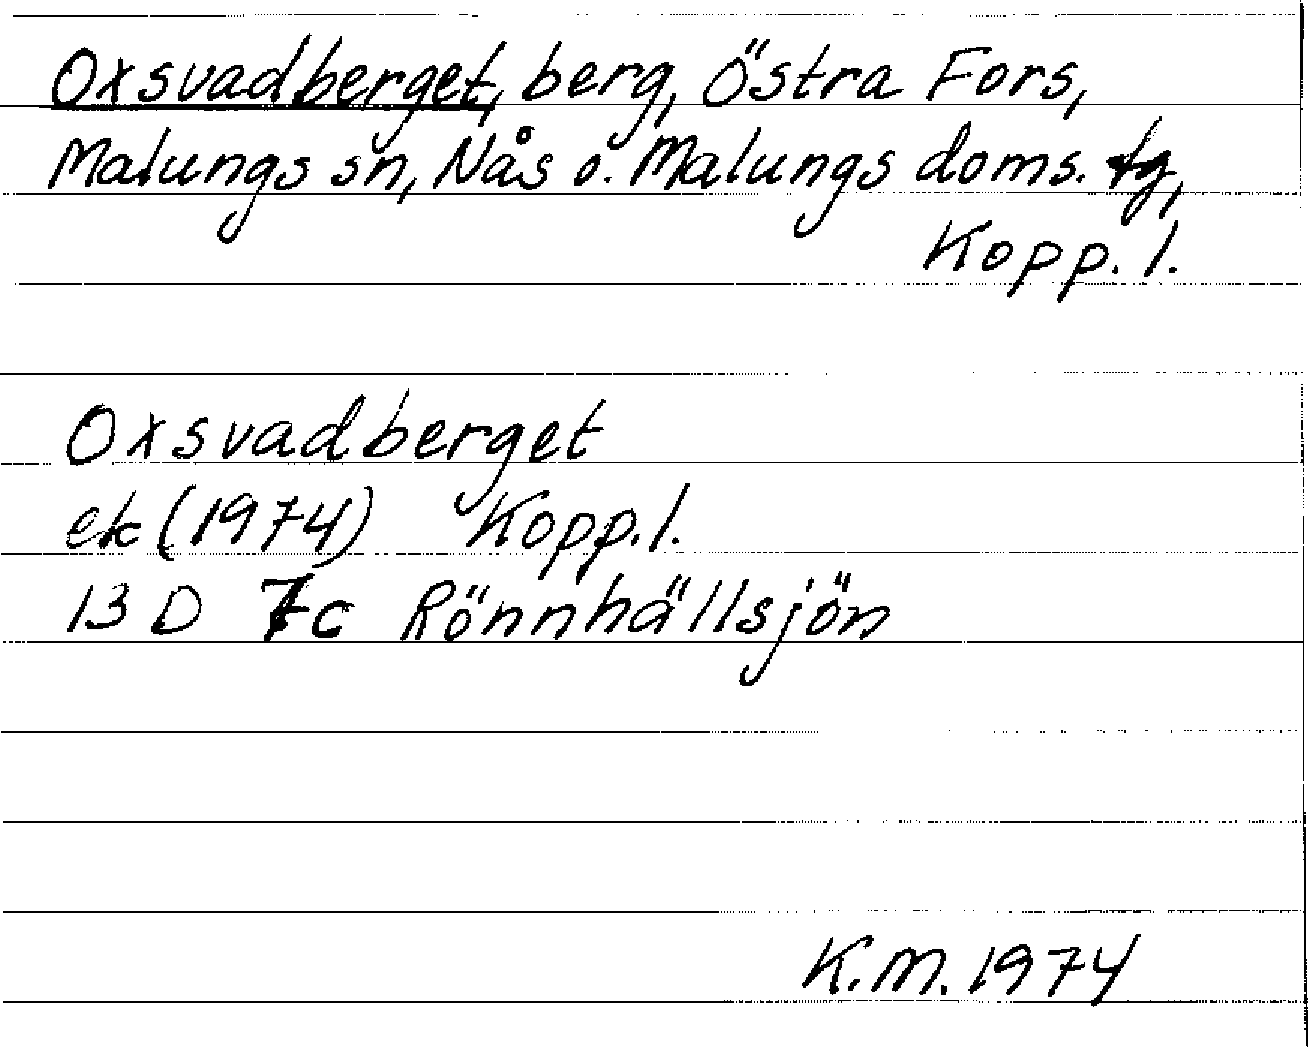 Oxsvadberget, berg, Östra Fors,
Malungs sn, Nås o. Malungs doms. tg,
Kopp. l.
Oxsvadberget
ek (1974) Kopp. l.
13 D 7c Rönnhällsjön
K.M. 1974